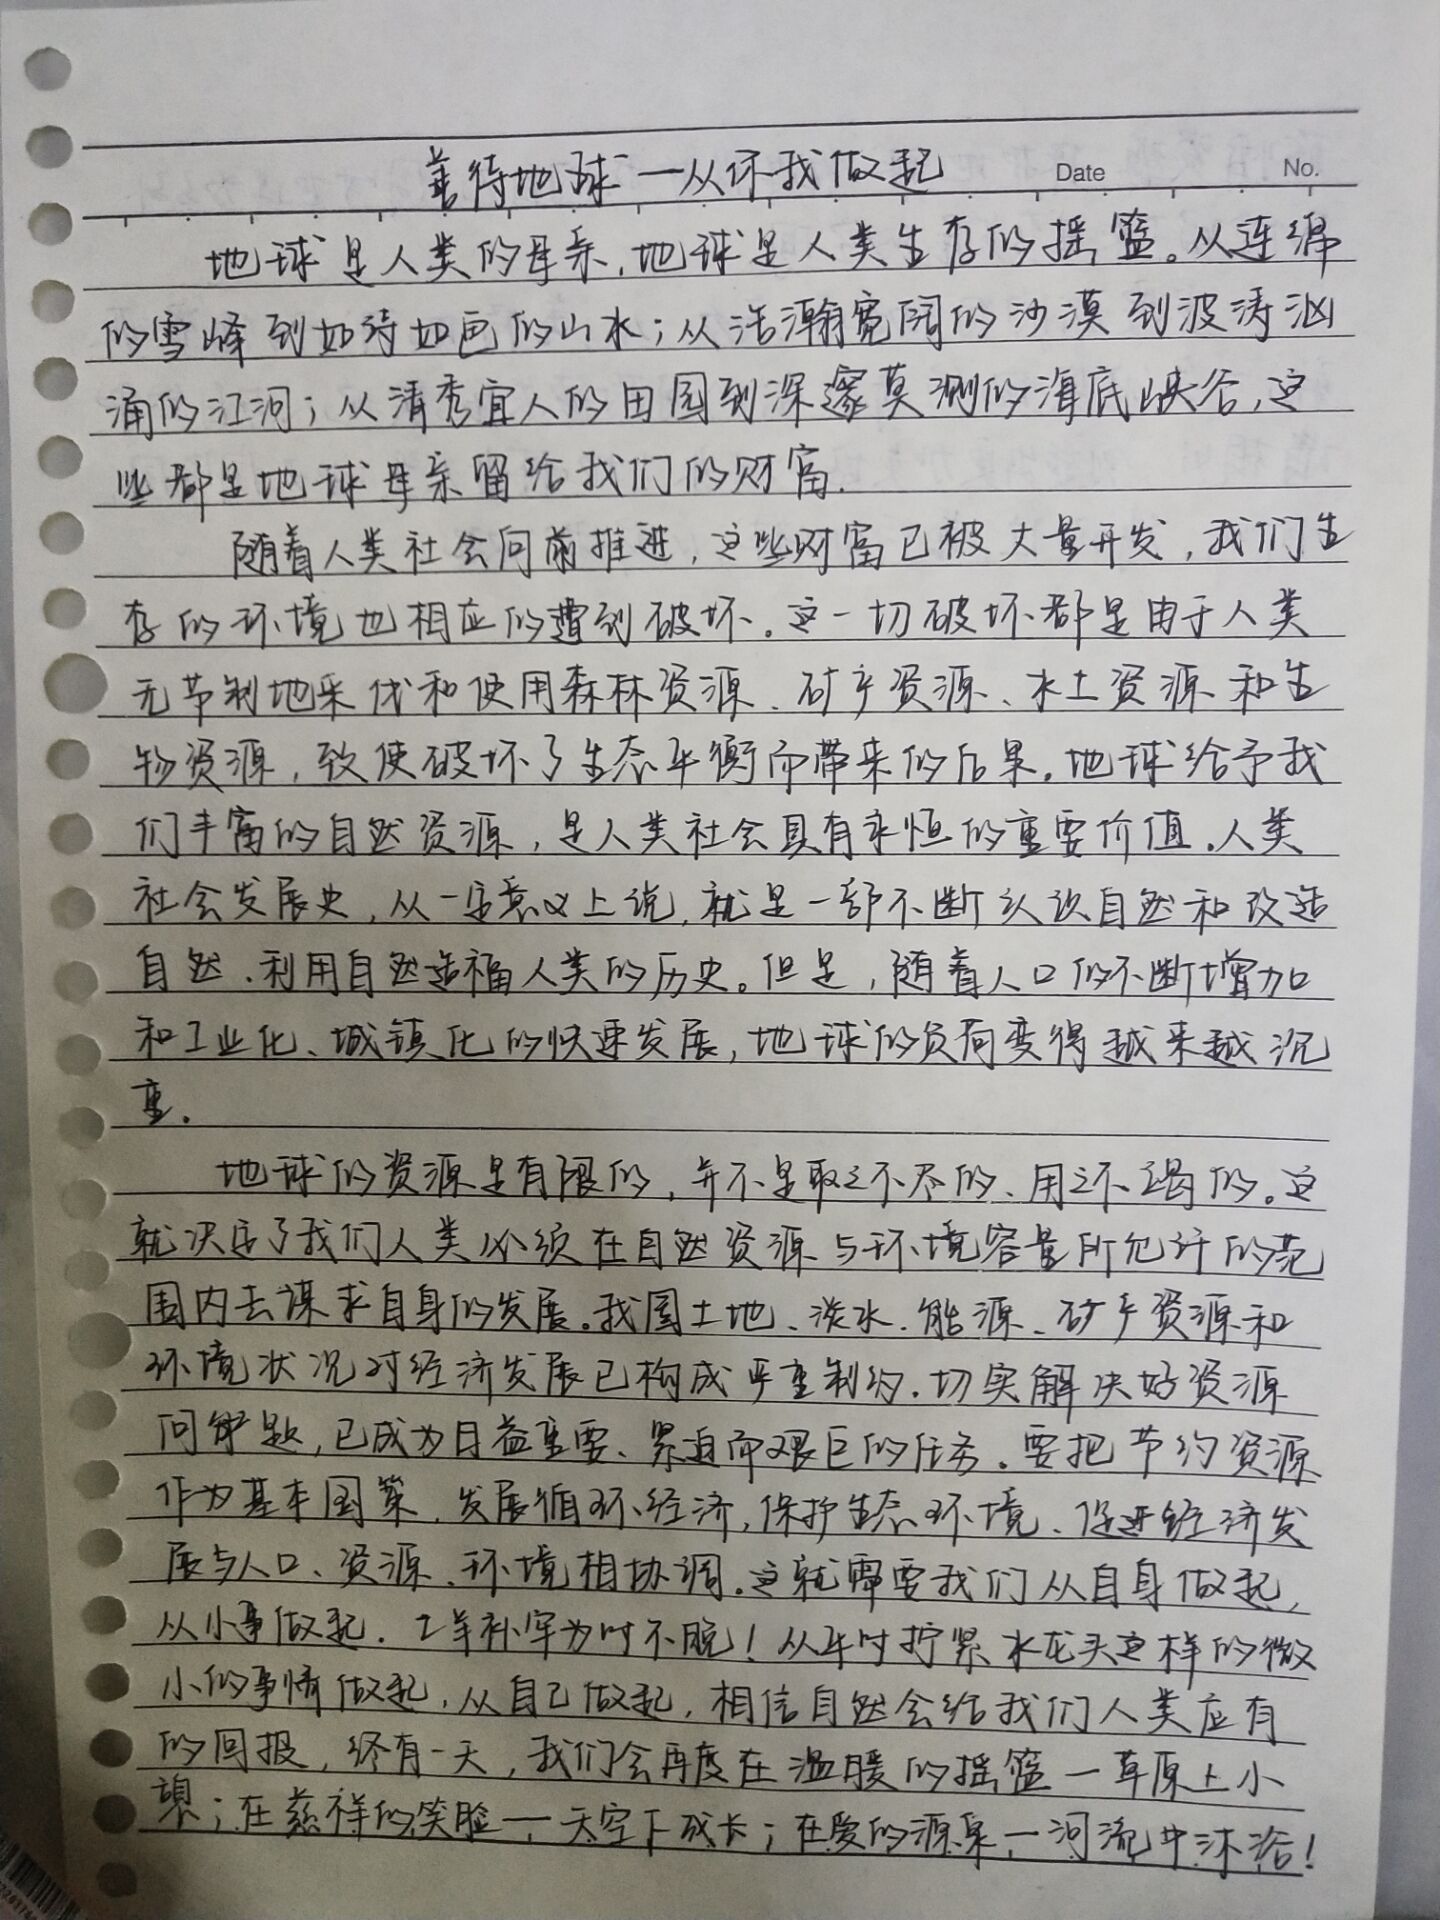 善待地球一从你我做起
Date No.
地球是人类的母亲,地球是人类生存的摇篮。从连绵
的雪峰到如诗如画的山水;从浩瀚宽阔的沙漠到波涛汹
涌的江河;从清秀宜人的田园到深邃莫测的海底峡谷,这
些都是地球母亲留给我们的财富.
随着人类社会向前推进,这些财富已被大量开发,我们生
存的环境也相应的遭到破坏。这一切破坏都是由于人类
无节制地采伐和使用森林资源、矿产资源、水土资源和生
物资源,致使破坏了生态平衡而带来的后果。地球给予我
们丰富的自然资源,是人类社会具有永恒的重要价值。人类
社会发展史,从一定意义上说,就是一部不断认识自然和改造
自然、利用自然造福人类的历史。但是,随着人口的不断增加
和工业化、城镇化的快速发展,地球的负荷变得越来越沉
重。
地球的资源是有限的,并不是取之不尽的、用之不竭的。这
就决定了我们人类必须在自然资源与环境容量所允许的范
围内去谋求自身的发展。我国土地、淡水、能源、矿产资源和
环境状况对经济发展已构成严重制约。切实解决好资源
问题,已成为日益重要、紧迫而艰巨的任务。要把节约资源
作为基本国策,发展循环经济,保护生态环境、促进经济发
展与人口、资源、环境相协调。这就需要我们从自身做起,
从小事做起.亡羊补牢为时不晚!从平时拧紧水龙头这样的微
小的事情做起,从自己做起,相信自然会给我们人类应有
的回报,终有一天,我们会再度在温暖的摇篮一草原上小
憩;在慈祥的笑脸一天空下成长;在爱的源泉一河流中沐浴!